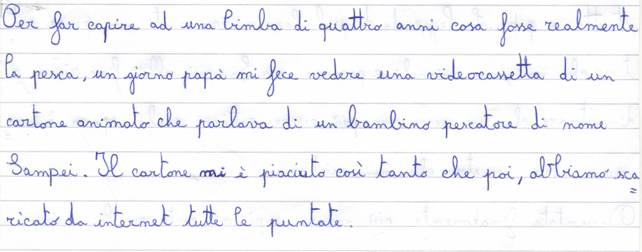 Per far capire ad una bimba di quattro anni cosa fosse realmente
la pesca, un giorno papà mi fece vedere una videocassetta di un
cartone animato che parlava di un bambino pescatore di nome
Sampei. Il cartone mi è piaciuto così tanto che poi, abbiamo sca=
ricato da internet tutte le puntate.